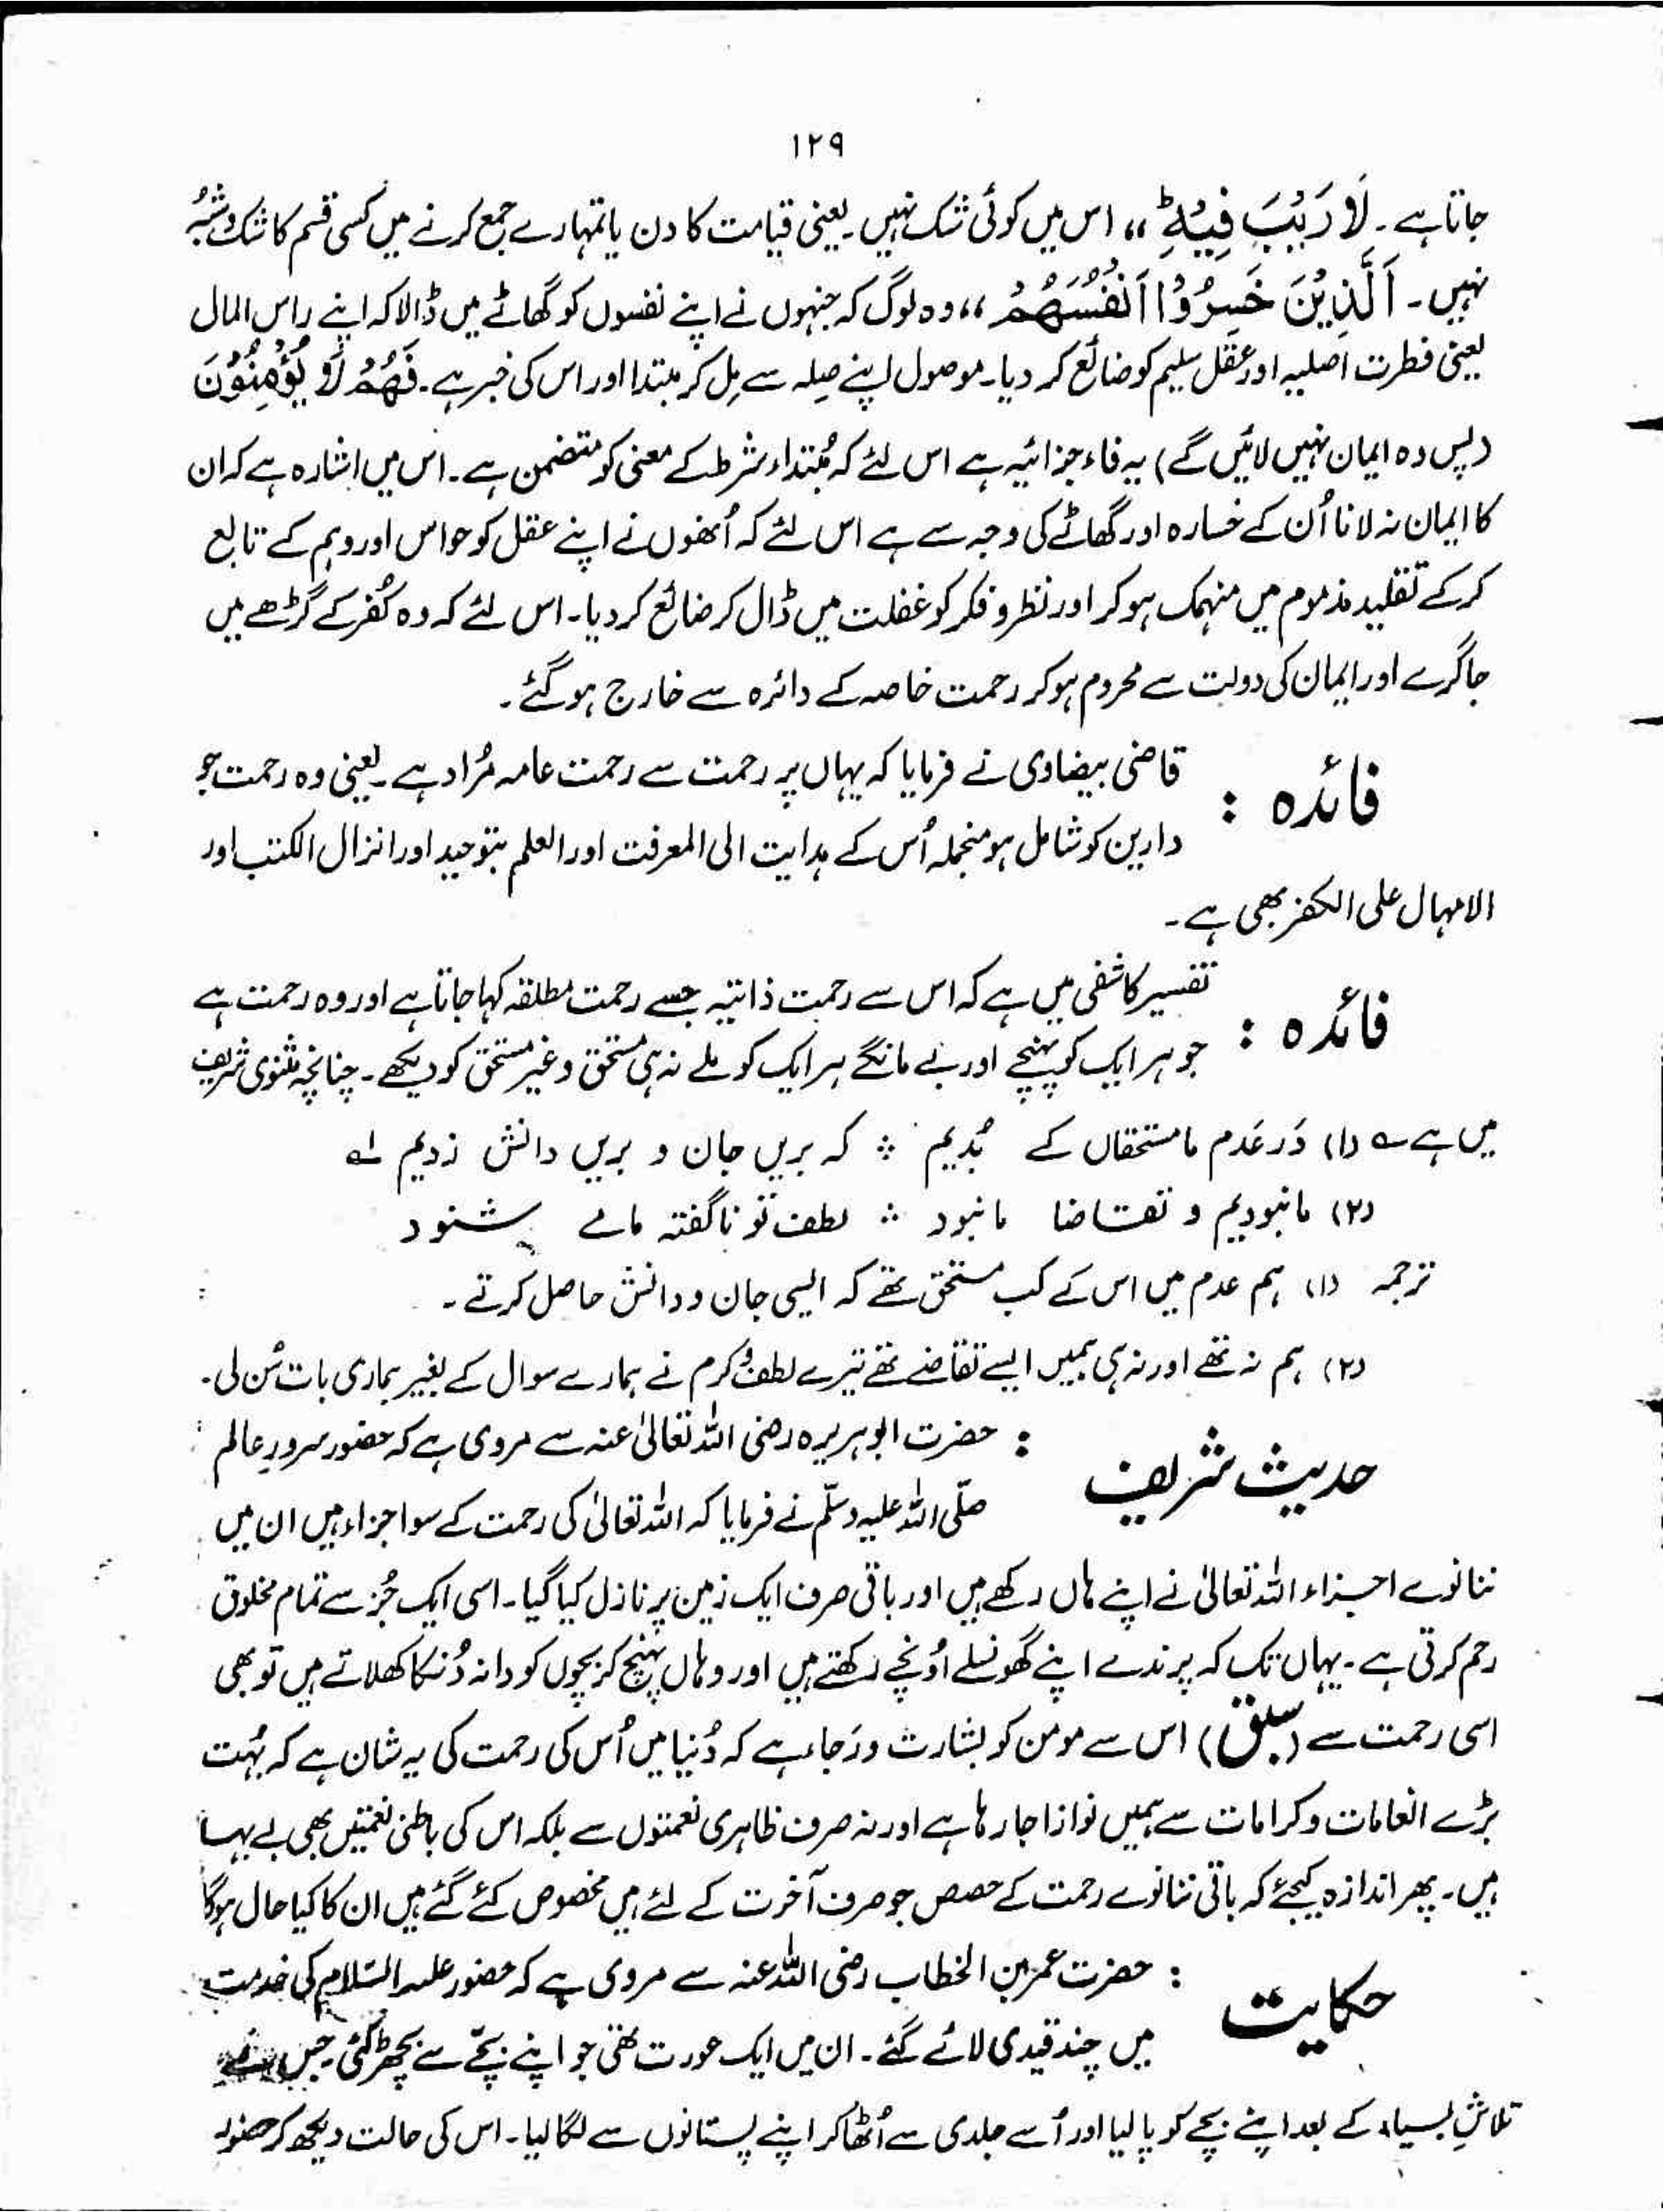 ۱۲۹
جاتا ہے۔ لَا رَیْبَ فِیْهِ ؕ ،، اس میں کوئی شک نہیں۔ یعنی قیامت کا دن یا تمہارے جمع کرنے میں کسی قسم کا شک و شبہُ
نہیں۔ اَلَّذِیْنَ خَسِرُوْا اَنْفُسَهُمْ ،، وہ لوگ کہ جنہوں نے اپنے نفسوں کو گھاٹے میں ڈالا کہ اپنے راس المال
یعنی فطرت اصلیہ اور عقل سلیم کو ضائع کر دیا۔ موصول اپنے صِلہ سے مِل کر مبتدا اور اس کی خبر ہے۔ فَهُمْ لَا یُؤْمِنُوْنَ
(پس وہ ایمان نہیں لائیں گے) یہ فاء جزائیہ ہے اس لئے کہ مُبتداء شرط کے معنی کو متضمن ہے۔ اس میں اشارہ ہے کہ ان
کا ایمان نہ لانا اُن کے خسارہ اور گھاٹے کی وجہ سے ہے اس لئے کہ اُنھوں نے اپنے عقل کو حواس اور وہم کے تابع
کر کے تقلید مذموم میں منہمک ہو کر اور نظر و فکر کو غفلت میں ڈال کر ضائع کر دیا۔ اس لئے کہ وہ کُفر کے گڑھے میں
جا گرے اور ایمان کی دولت سے محروم ہو کر رحمت خاصہ کے دائرہ سے خارج ہو گئے۔
فائدہ : قاضی بیضاوی نے فرمایا کہ یہاں پر رحمت سے رحمت عامہ مُراد ہے۔ یعنی وہ رحمت جو
دارین کو شامل ہو منجملہ اُس کے ہدایت الی المعرفت اور العلم بتوحید اور انزال الکتب اور
الامہال علی الکفر بھی ہے۔
فائدہ : تفسیر کاشفی میں ہے کہ اس سے رحمت ذاتیہ جسے رحمت مطلقہ کہا جاتا ہے اور وہ رحمت ہے
جو ہر ایک کو پہنچے اور بے مانگے ہر ایک کو ملے نہ ہی مستحق و غیر مستحق کو دیکھے۔ چنانچہ مثنوی شریف
میں ہے ؎ (۱) دَر عَدم ما مستحقاں کے بُدیم ؞ کہ بریں جان و بریں دانش زدیم ؎
(۲) ما نبودیم و تقاضا ما نبود ؞ لطف تو ناگفتہ مامے شنود
ترجمہ (۱) ہم عدم میں اس کے کب مستحق تھے کہ ایسی جان و دانش حاصل کرتے۔
(۲) ہم نہ تھے اور نہ ہی ہمیں ایسے تقاضے تھے تیرے لطف و کرم نے ہمارے سوال کے بغیر ہماری بات سُن لی۔
حدیث شریف : حضرت ابو ہریرہ رضی اللہ تعالیٰ عنہ سے مروی ہے کہ حضور سرورِ عالم
صلّی اللہ علیہ وسلّم نے فرمایا کہ اللہ تعالیٰ کی رحمت کے سو اجزاء ہیں ان میں
ننانوے اجزاء اللہ تعالیٰ نے اپنے ہاں رکھے ہیں اور باقی صرف ایک زمین پر نازل کیا گیا۔ اسی ایک جُز سے تمام مخلوق
رحم کرتی ہے۔ یہاں تک کہ پرندے اپنے گھونسلے اُونچے رکھتے ہیں اور وہاں پہنچ کر بچوں کو دانہ دُنکا کھلاتے ہیں تو بھی
اسی رحمت سے (سبق) اس سے مومن کو بشارت و رَجاء ہے کہ دُنیا میں اُس کی رحمت کی یہ شان ہے کہ بہُت
بڑے انعامات و کرامات سے ہمیں نوازا جا رہا ہے اور نہ صرف ظاہری نعمتوں سے بلکہ اس کی باطنی نعمتیں بھی بے بہا
ہیں۔ پھر اندازہ کیجئے کہ باقی ننانوے رحمت کے حصص جو صرف آخرت کے لئے ہیں مخصوص کئے گئے ہیں ان کا کیا حال ہوگا
حکایت : حضرت عمر بن الخطاب رضی اللہ عنہ سے مروی ہے کہ حضور علیہ السّلام کی خدمت
میں چند قیدی لائے گئے۔ ان میں ایک عورت تھی جو اپنے بچّے سے بچھڑ گئی جس نے
تلاشِ بسیار کے بعد اپنے بچے کو پا لیا اور اُسے جلدی سے اُٹھا کر اپنے پستانوں سے لگا لیا۔ اس کی حالت دیکھ کر حضور